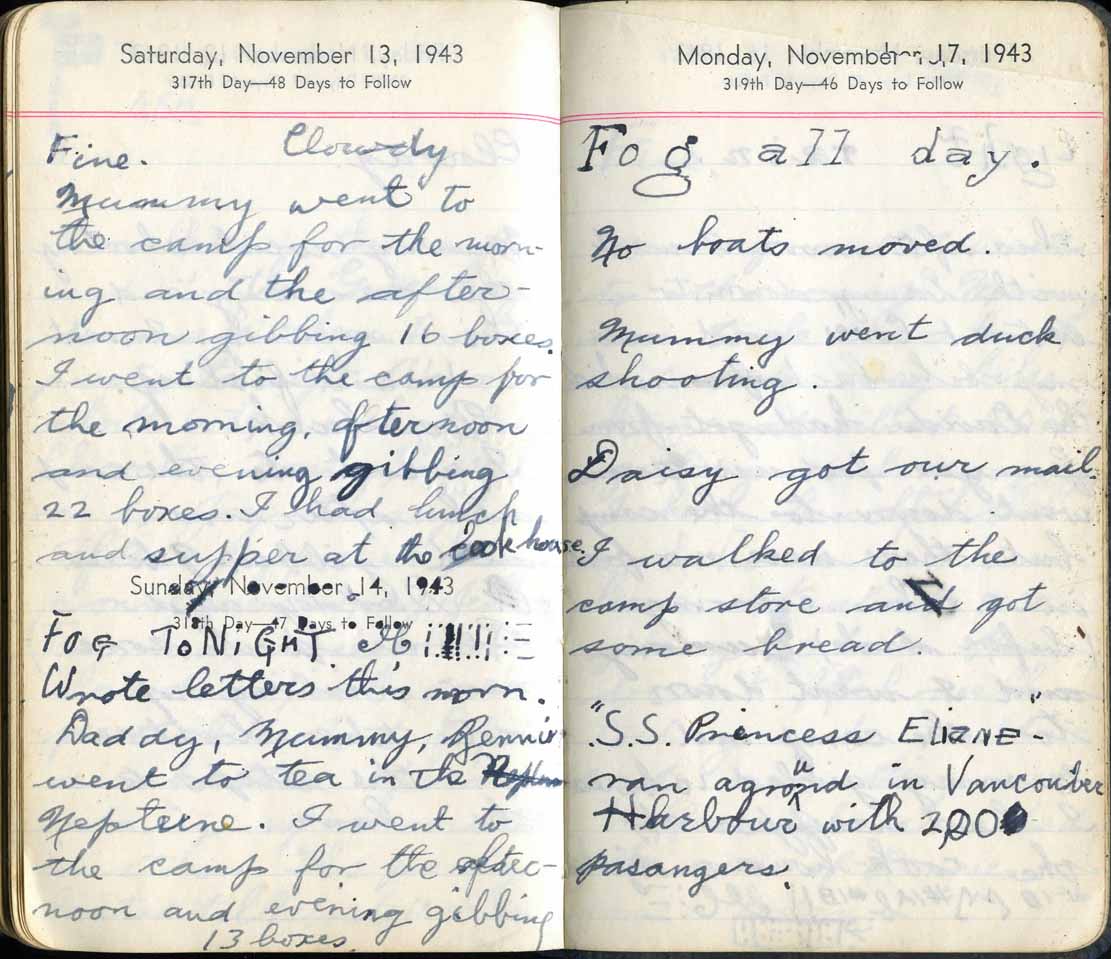 Saturday, November 13, 1943
317th Day—48 Days to Follow
Fine. Clowdy
Mummy went to
the camp for the morn-
ing and the after-
noon gibbing 16 boxes.
I went to the camp for
the morning, afternoon
and evening gibbing
22 boxes. I had lunch
and supper at the cook house.
Sunday, November 14, 1943
318th Day—47 Days to Follow
FOG TONiGHT
Wrote letters this morn.
Daddy, Mummy,
went to tea in the
Neptune. I went to
the camp for the after-
noon and evening gibbing
13 boxes.
Monday, November 17, 1943
319th Day—46 Days to Follow
Fog all day.
No boats moved.
Mummy went duck
shooting.
Daisy got our mail.
I walked to the
camp store and got
some bread.
"S.S. Princess ELIANE"-
ran aground in Vancouver
Harbour with 200
pasangers.